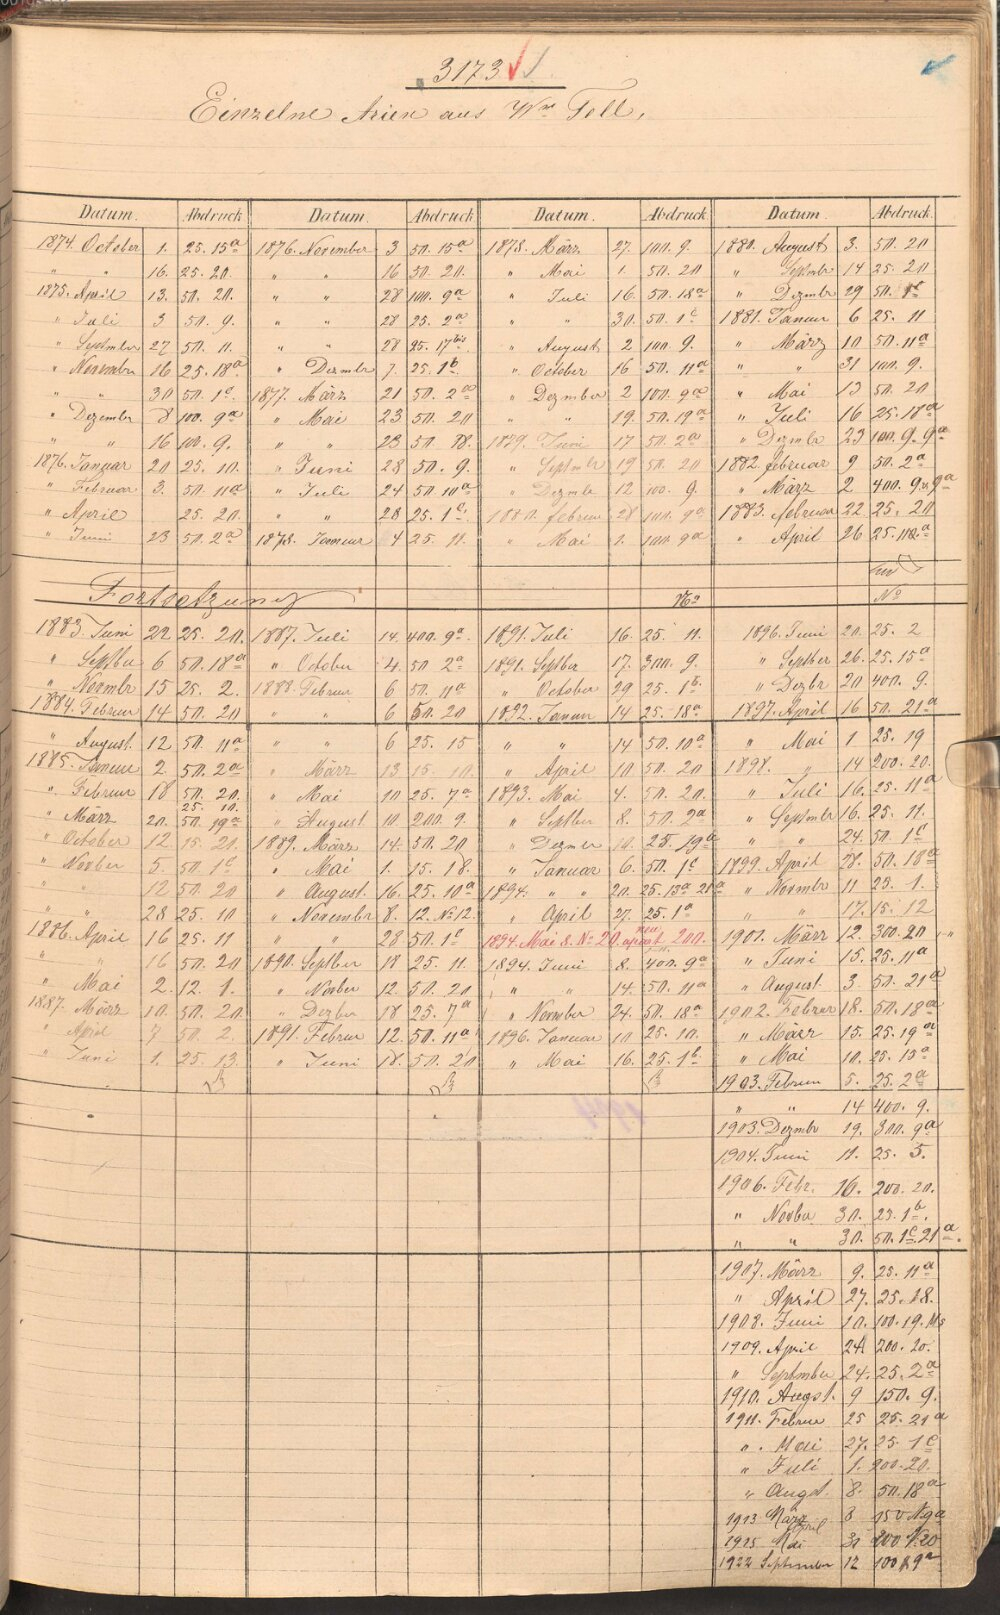 3173
Einzelne Arien aus Wm Tell.
Datum. Abdruck Datum. Abdruck Datum. Abdruck Datum. Abdruck.
1874. October 1. 25. 15a 1876. November 3 50. 15a 1878. März 27. 100. 9. 1880. August 3. 50. 20
" " 16. 25. 20. " " 16 50. 20. " Mai 1. 50. 20 " Septmbr 14 25. 20
1875. April 13. 50. 20. " " 28 100. 9a " Juli 16. 50. 18a " Dezmbr 29 50. 1c
" Juli 3 50. 9. " " 28 25. 2a " " 30. 50. 1c 1881. Januar 6 25. 11
" September 27 50. 11. " " 28 25. 17bis " August 2 100. 9. " März 10 50. 11a
" November 16 25. 18a " Dezmbr 7. 25. 1b " October 16 50. 11a " " 31 100. 9.
" " 30 50. 1c 1877. März 21 50. 2a " Dezmber 2 100. 9a " Mai 13 50. 20
" Dezember 8 100. 9a " Mai 23 50. 20 " " 19. 50. 19a " Juli 16 25. 18a
" " 16 100. 9. " " 23 50. 18. 1879. Juni 17 50. 2a " Dezmbr 23 100. 9. 9a
1876. Januar 20 25. 10. " Juni 28 50. 9. " Septmbr 19 50. 20 1882. februar 9 50. 2a
" Februar 3. 50. 11a " Juli 24 50. 10a " Dezmbr 12 100. 9. " März 2 400. 9 9a
" April 25. 20. " " 28 25. 1c 1880. februar 28 100. 9a 1883. februar 22 25. 20
" Juni 23 50. 2a 1878. Januar 4 25. 11. " Mai 1. 100. 9a " April 26 25.
Fortsetzung No No
1883. Juni 22 25. 20. 1887. Juli 14. 400. 9a 1891. Juli 16. 25. 11. 1896. Juni 20. 25. 2
" Septber 6 50. 18a " October 4. 50 2a 1891. Septber 17. 300. 9. " Septber 26. 25. 15a
" Novembr 15 25. 2. 1888. Februar 6 50. 11a " October 29 25. 1b " Dezbr 20 400. 9.
1884. Februar 14 50. 20 " " 6 50. 20 1892. Januar 14 25. 18a 1897. April 16 50. 21a
" August 12 50. 11a " " 6 25. 15 " " 14 50. 10a " Mai 1 25. 19
1885. Januar 2. 50. 2a " März 13 15. 10. " April 10 50. 20 1898. " 14 200. 20.
" Februar 18 50. 20. " Mai 10 25. 7a 1893. Mai 4. 50. 20. " Juli 16. 25. 11a
25. 10.
" März 20. 50. 19a " August 10 200 9. " Septber 8. 50. 2a " Septembr 16. 25. 11.
" October 12 15. 20. 1889. März 14. 50. 20 " Dezmer 10. 25. 19a " " 24. 50. 1c
" Novber 5. 50. 1c " Mai 1. 15. 18. " Januar 6. 50. 1c 1899. April 28. 50. 18a
" " 12 50. 20 " August 16. 25. 10a 1894. " " 20. 25. 15a 21a " Novmbr 11 25. 1.
" " 28 25. 10 " November 8. 12. No 12. " April 27. 25. 1a " " 17. 15. 12
1886. April 16 25. 11 " " 28 50. 1c 1894. Mai 8. No 20. neu 200. 1901. März 12. 300. 20
" " 16 50. 20 1890. Septber 18 25. 11. 1894. Juni 8. 400. 9a " Juni 15. 25. 11a
" Mai 2. 12. 1. " Novber 12. 50. 20 " " 14. 50. 11a " August 3. 50. 21a
1887. März 10 50. 20 " Dezber 18 25. 7a " November 24. 50. 18a 1902. Februar 18. 50. 18a
" April 7 50. 2 1891. Februr 12. 50. 11a 1896. Januar 10 25. 10. " März 15. 25. 19a
" Juni 1. 25. 13 " Juni 18. 50. 20 " Mai 16. 25. 1b " Mai 10. 25. 15a
1903. Februar 5. 25. 2a
" " 14 400. 9.
1903. Dezmbr 19. 300. 9a
1904. Juni 11. 25. 5.
1906. Febr. 16. 200. 20.
" Novber 30. 25. 1b.
" " 30. 50. 1c. 21a.
1907. März 9. 25. 11a
" April 27. 25. 18.
1908. Juni 10. 100. 19.
1909. April 24 200. 20.
" September 24. 25. 2a
1910. Augst. 9 150. 9.
1911. Februar 25 25. 21a
" . Mai 27. 25. 1c
" Juli 1. 200. 20.
" Augst. 8. 50. 18a
1913 März 8 150 N 9a
April
1915 Mai 31 200 N. 20
1922 September 12 100 N 9a